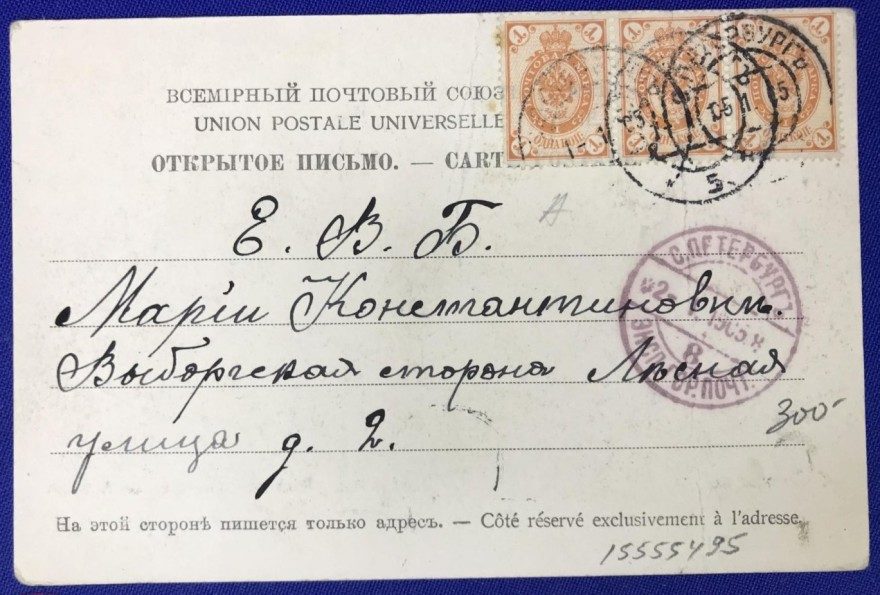 ВСЕМІРНЫЙ ПОЧТОВЫЙ СОЮЗ
UNION POSTALE UNIVERSELLE
ОТКРЫТОЕ ПИСЬМО. — CART
1 1 1 1 1 1
Е. В. Б.
Маріи Константинович.
Выборгская сторона Лѣсная
улица д. 2.
С.ПЕТЕРБУРГЪ
1905
8
ГОР.ПОЧТ.
5
300-
На этой сторонѣ пишется только адресъ. — Côté réservé exclusivement à l'adresse.
15555495